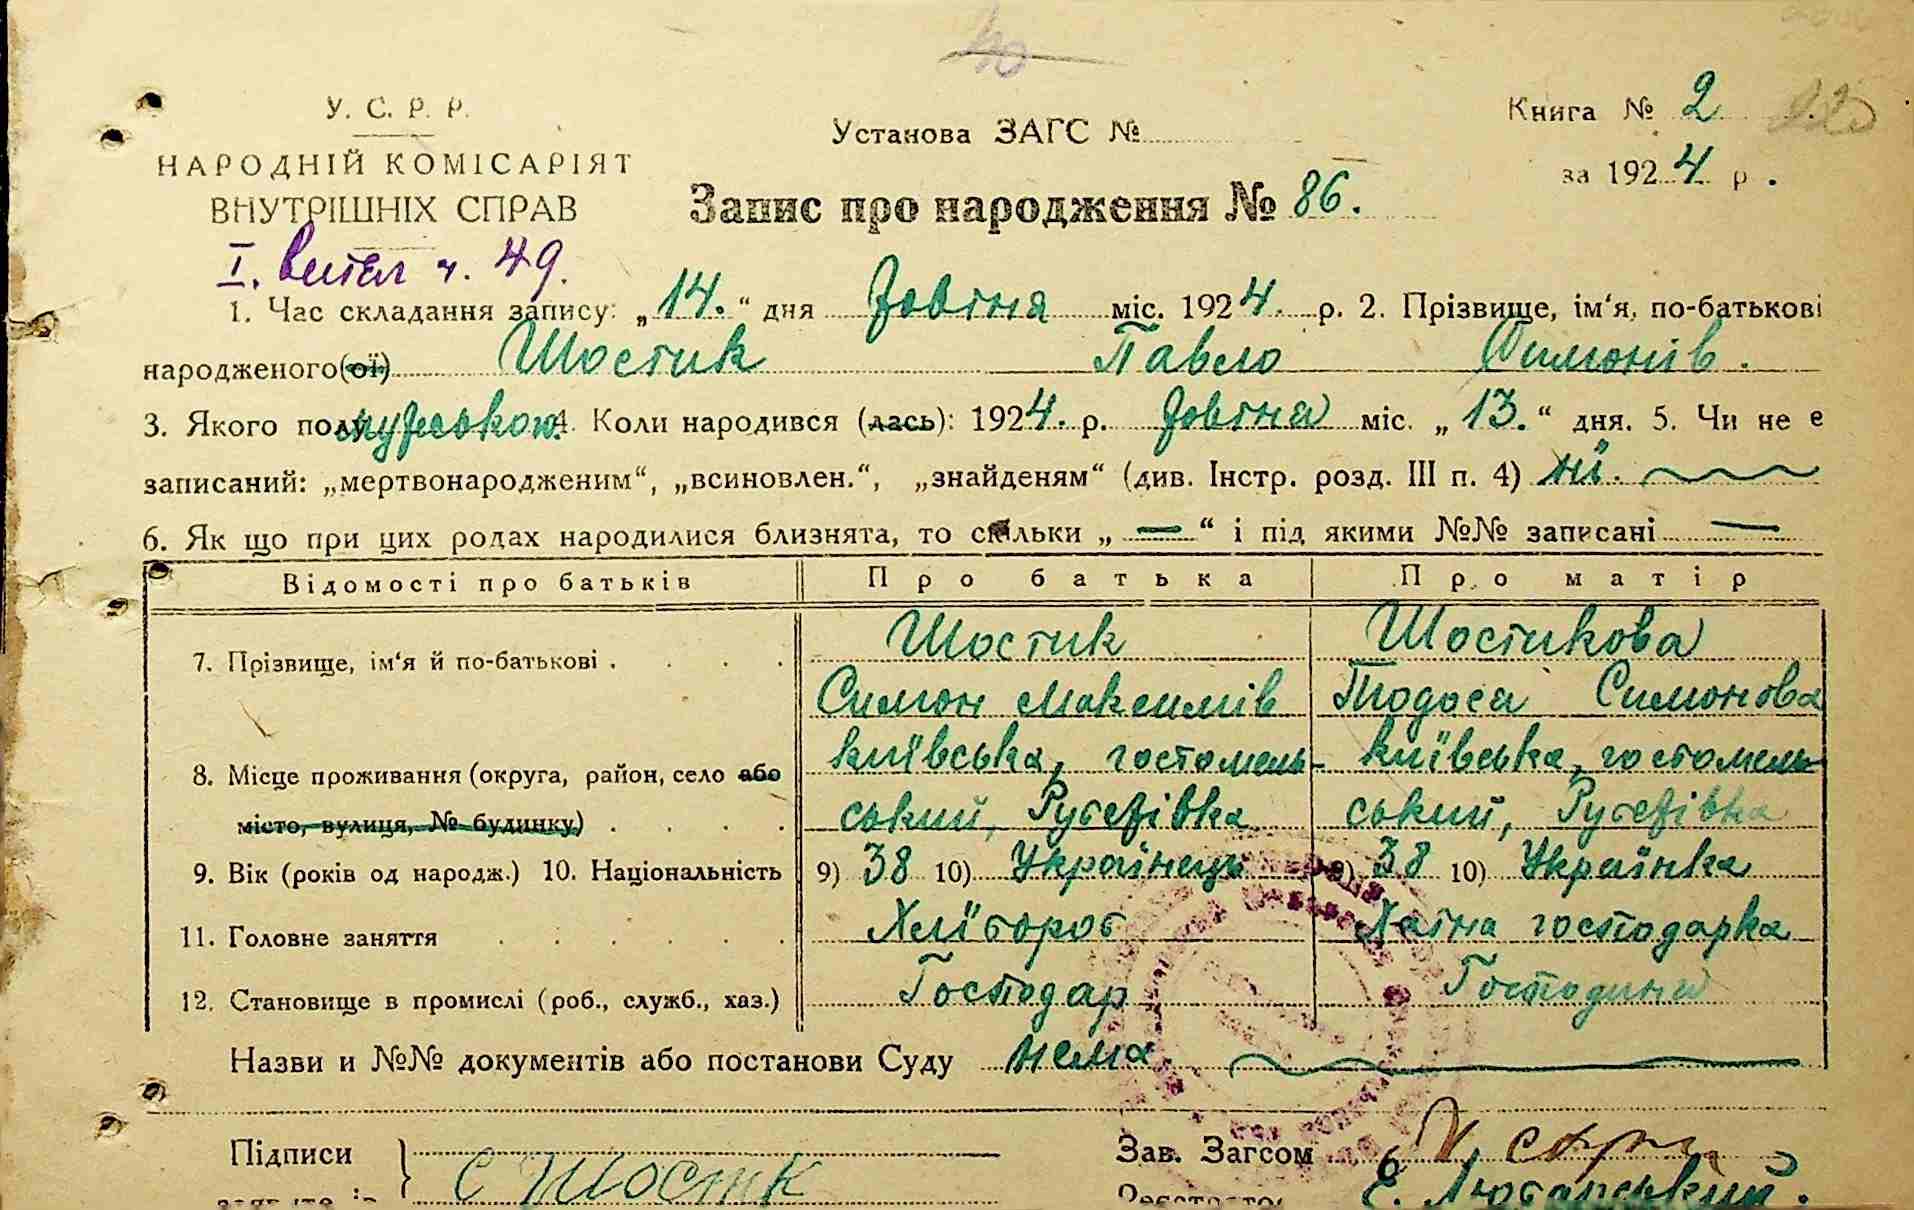 40
У. С. Р. Р.
НАРОДНІЙ КОМІСАРІЯТ
ВНУТРІШНІХ СПРАВ
Установа ЗАГС №
Книга № 2
за 1924 р.
Запис про народження № 86.
I. Витяг ч. 49.
1. Час складання запису: „14.“ дня Жовтня міс. 1924. р. 2. Прізвище, ім‘я, по-батькові
народженого(ої) Шостик Павло Симонів.
3. Якого полу мужського. 4. Коли народився (лась): 1924. р. Жовтня міс. „13.“ дня. 5. Чи не є
записаний: „мертвонародженим“, „всиновлен.“, „знайденям“ (див. Інстр. розд. III п. 4) ні.
6. Як що при цих родах народилися близнята, то скільки „—“ і під якими №№ записані —
Відомості про батьків Про батька Про матір
7. Прізвище, ім‘я й по-батькові . Шостик Шостикова
Симон Максимів Тодося Симонова
8. Місце проживання (округа, район, село або київська, гостомель- київська, гостомель-
місто, вулиця, № будинку) ський, Рубежівка ський, Рубежівка
9. Вік (років од народж.) 10. Національність 9) 38 10) Українець 9) 38 10) Українка
11. Головне заняття Хлібороб Хатня господарка
12. Становище в промислі (роб., служб., хаз.) Господар Господиня
Назви и №№ документів або постанови Суду нема
Підписи Зав. Загсом
С Шостик